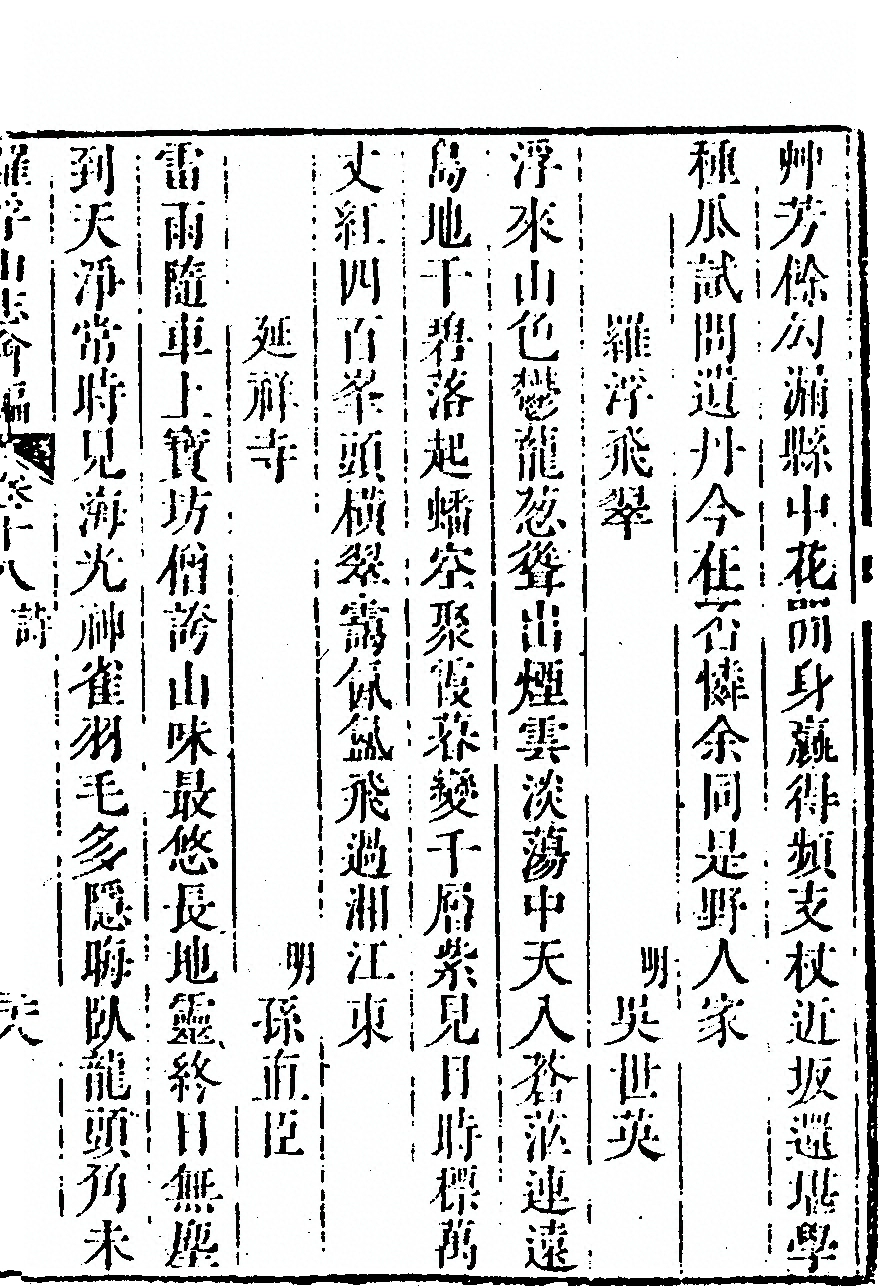 艸芳餘勾漏縣中花開身羸得頻支杖近坂還堪學
種瓜試問遺丹今在否憐余同是野人家
羅浮飛翠
明吳世英
浮來山色鬱龍葱聳出煙雲淡蕩中天入蒼茫連遠
島地千碧落起蟠空聚霞暮變千層紫見日時標萬
丈紅四百峯頭橫翠靄氤氳飛過湘江東
延祥寺
明孫直臣
雷雨隨車上寶坊僧誇山味最悠長地靈終日無塵
到天淨常時見海光神雀羽毛多隱晦臥龍頭角未
羅浮山志會編 卷十八 詩 六